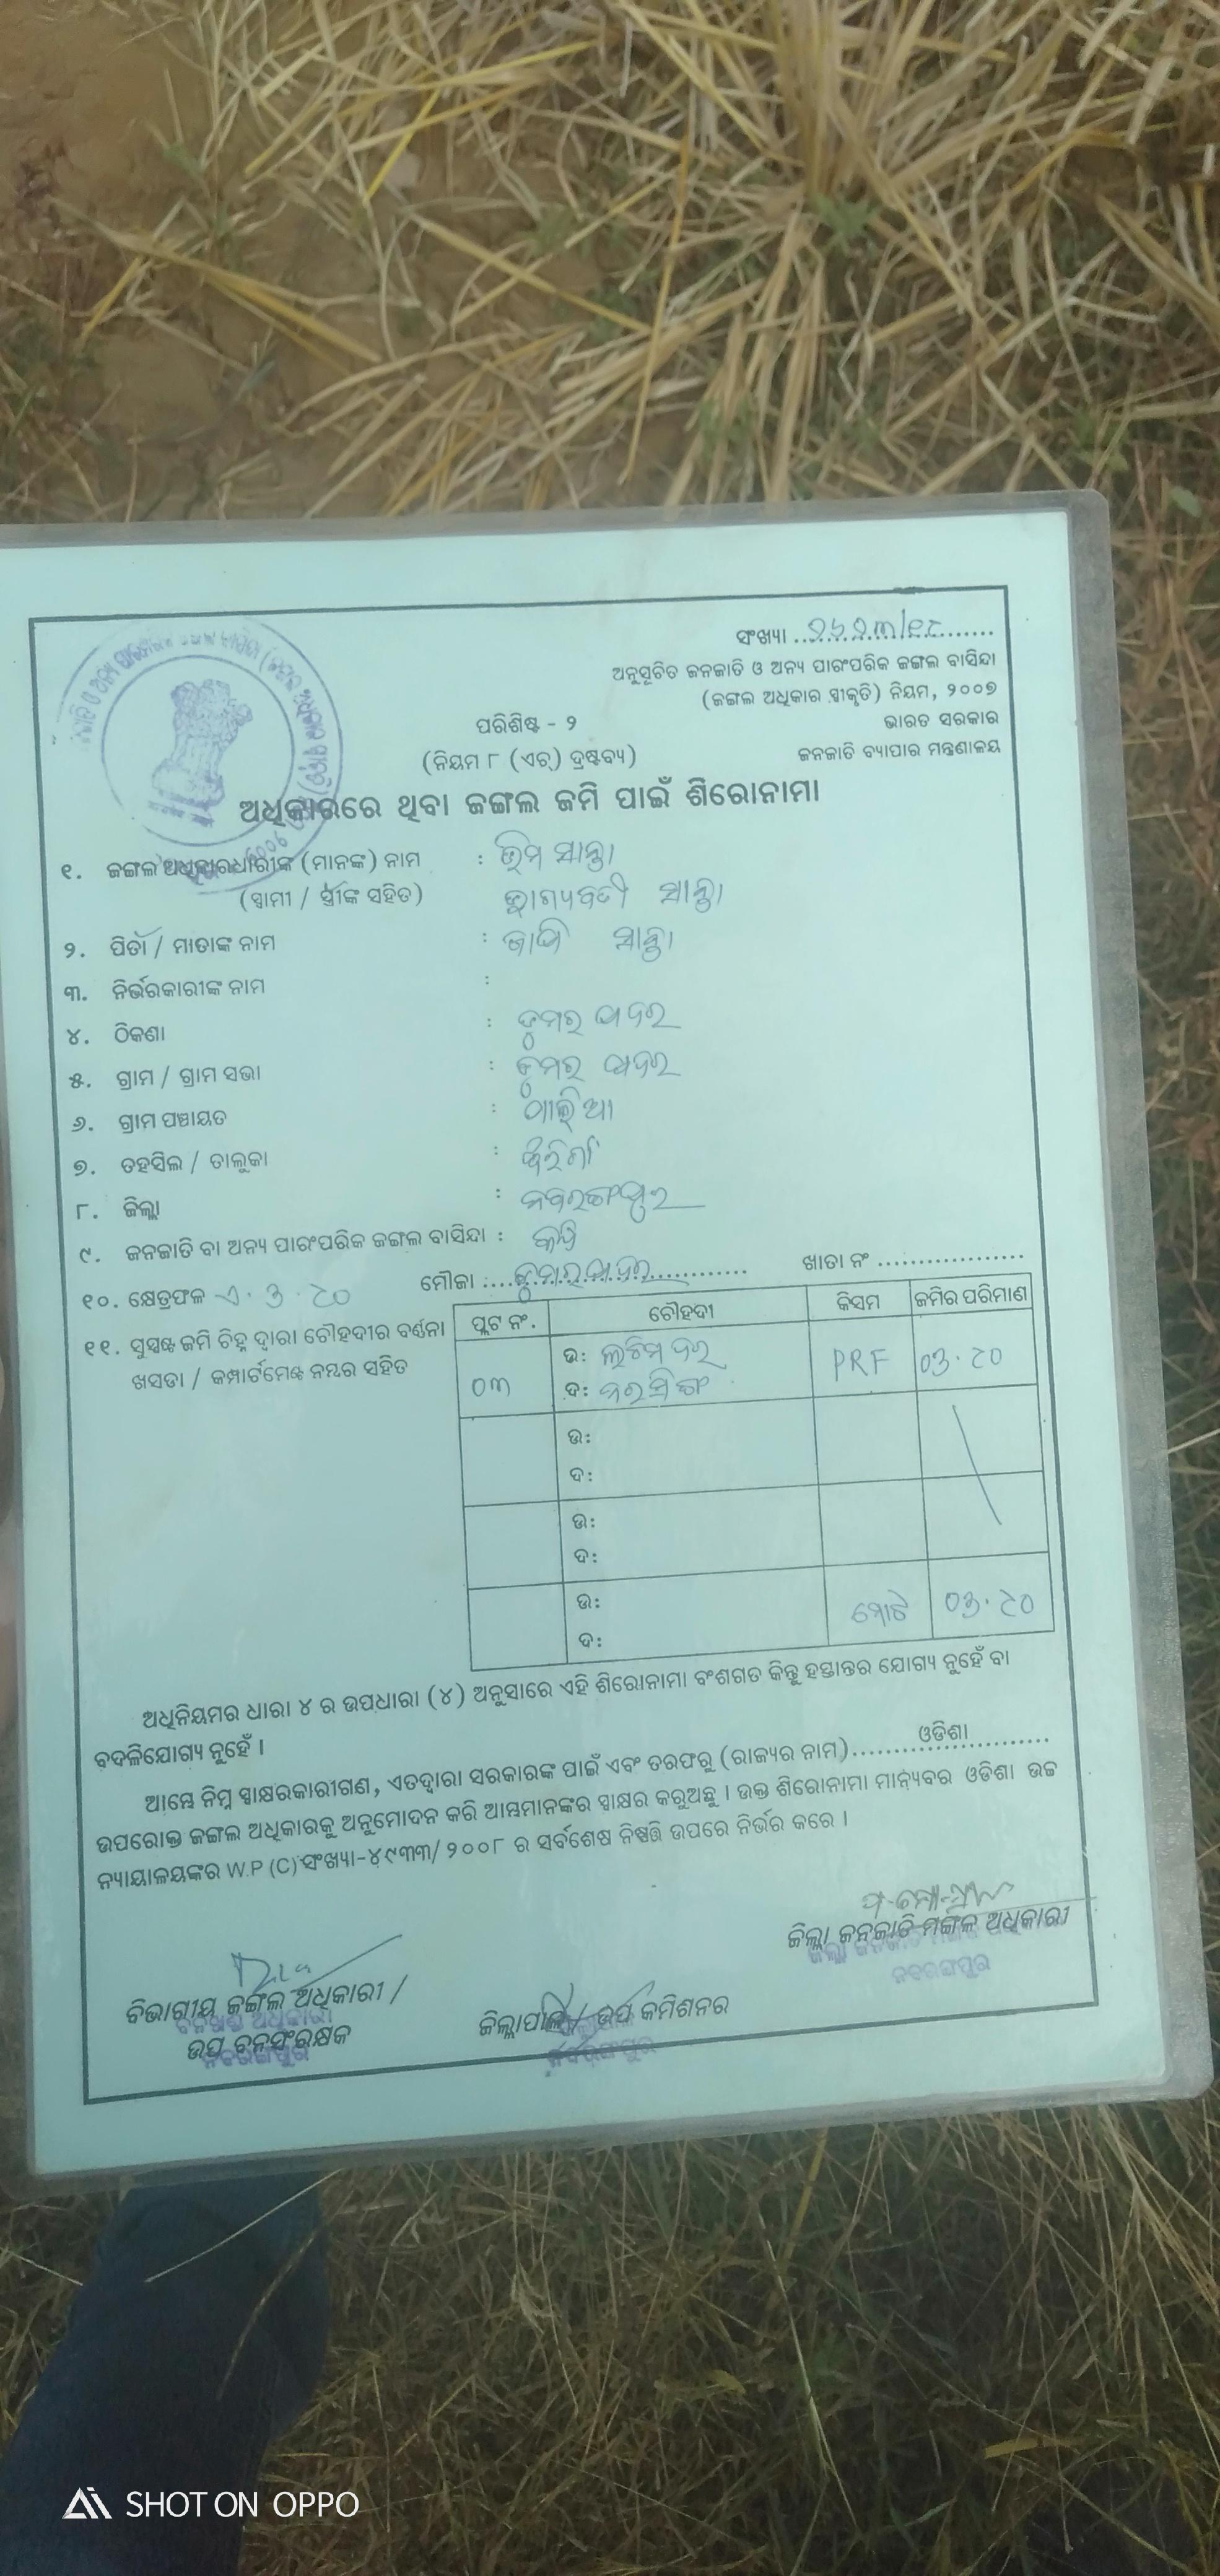 ସଂଖ୍ୟା ..୨୬୨୩/୧୮......
ଅନୁସୂଚିତ ଜନଜାତି ଓ ଅନ୍ୟ ପାରଂପରିକ ଜଙ୍ଗଲ ବାସିନ୍ଦା
(ଜଙ୍ଗଲ ଅଧିକାର ସ୍ୱୀକୃତି) ନିୟମ, ୨୦୦୭
ଭାରତ ସରକାର
ଜନଜାତି ବ୍ୟାପାର ମନ୍ତ୍ରଣାଳୟ
ପରିଶିଷ୍ଟ - ୨
(ନିୟମ ୮ (ଏଚ୍) ଦ୍ରଷ୍ଟବ୍ୟ)
ଅଧିକାରରେ ଥିବା ଜଙ୍ଗଲ ଜମି ପାଇଁ ଶିରୋନାମା
୧. ଜଙ୍ଗଲ ଅଧିକାରଧାରୀଙ୍କ (ମାନଙ୍କ) ନାମ : ଭିମ ସାନ୍ତା
(ସ୍ୱାମୀ / ସ୍ତ୍ରୀଙ୍କ ସହିତ) ଭାଗ୍ୟବତୀ ସାନ୍ତା
୨. ପିତା / ମାତାଙ୍କ ନାମ : ସାନ୍ତା
୩. ନିର୍ଭରକାରୀଙ୍କ ନାମ :
୪. ଠିକଣା : ଡୁମର ପଦର
୫. ଗ୍ରାମ / ଗ୍ରାମ ସଭା : ଡୁମର ପଦର
୬. ଗ୍ରାମ ପଞ୍ଚାୟତ :
୭. ତହସିଲ / ତାଲୁକା :
୮. ଜିଲ୍ଲା : ନବରଙ୍ଗପୁର
୯. ଜନଜାତି ବା ଅନ୍ୟ ପାରଂପରିକ ଜଙ୍ଗଲ ବାସିନ୍ଦା :
୧୦. କ୍ଷେତ୍ରଫଳ ଏ. ୩.୮୦ ମୌଜା : ଡୁମରପଦର ଖାତା ନଂ ..................
୧୧. ସୁସ୍ପଷ୍ଟ ଜମି ଚିହ୍ନ ଦ୍ୱାରା ଚୌହଦୀର ବର୍ଣ୍ଣନା
ଖସଡା / କମ୍ପାର୍ଟମେଣ୍ଟ ନମ୍ବର ସହିତ
ପ୍ଲଟ ନଂ. ଚୌହଦୀ କିସମ ଜମିର ପରିମାଣ
୦୩ ଉ: PRF ୦୩.୮୦
ଦ:
ଉ:
ଦ:
ଉ:
ଦ:
ଉ: ମୋଟ ୦୩.୮୦
ଦ:
ଅଧିନିୟମର ଧାରା ୪ ର ଉପଧାରା (୪) ଅନୁସାରେ ଏହି ଶିରୋନାମା ବଂଶଗତ କିନ୍ତୁ ହସ୍ତାନ୍ତର ଯୋଗ୍ୟ ନୁହେଁ ବା
ବଦଳିଯୋଗ୍ୟ ନୁହେଁ ।
ଆମ୍ଭେ ନିମ୍ନ ସ୍ୱାକ୍ଷରକାରୀଗଣ, ଏତଦ୍ୱାରା ସରକାରଙ୍କ ପାଇଁ ଏବଂ ତରଫରୁ (ରାଜ୍ୟର ନାମ)........ଓଡିଶା..........
ଉପରୋକ୍ତ ଜଙ୍ଗଲ ଅଧିକାରକୁ ଅନୁମୋଦନ କରି ଆମ୍ଭମାନଙ୍କର ସ୍ୱାକ୍ଷର କରୁଅଛୁ । ଉକ୍ତ ଶିରୋନାମା ମାନ୍ୟବର ଓଡିଶା ଉଚ୍ଚ
ନ୍ୟାୟାଳୟଙ୍କର W.P (C) ସଂଖ୍ୟା-୪୯୩୩/ ୨୦୦୮ ର ସର୍ବଶେଷ ନିଷ୍ପତ୍ତି ଉପରେ ନିର୍ଭର କରେ ।
ଜିଲ୍ଲା ଜନଜାତି ମଙ୍ଗଳ ଅଧିକାରୀ
ନବରଙ୍ଗପୁର
ବିଭାଗୀୟ ଜଙ୍ଗଲ ଅଧିକାରୀ /
ଉପ ବନସଂରକ୍ଷକ
ନବରଙ୍ଗପୁର
ଜିଲ୍ଲାପାଳ / ଉପ କମିଶନର
ନବରଙ୍ଗପୁର
SHOT ON OPPO